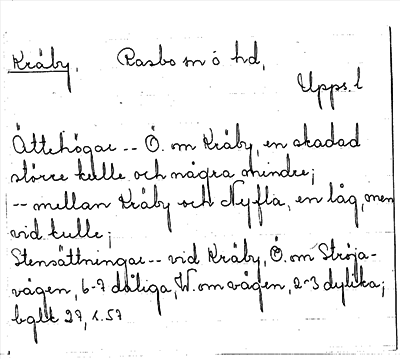 Kråby. Rasbo sn ó hd,
Upps. l
Ättehögar -- Ö. om Kråby, en skadad
större kulle och några mindre;
-- mellan Kråby och Nyfla, en låg, men
vid kulle;
Stensättningar -- vid Kråby, Ö. om Ströja-
vägen, 6-7 dåliga, W. om vägen, 2-3 dylika;
bglt 27, s. 57